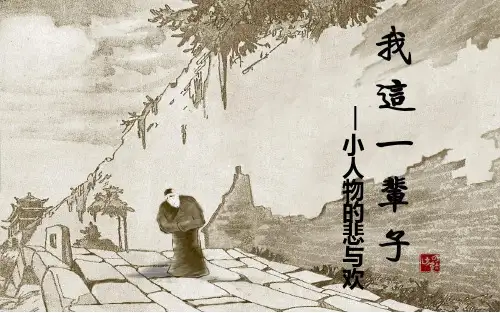 我這一輩子
—小人物的悲与欢